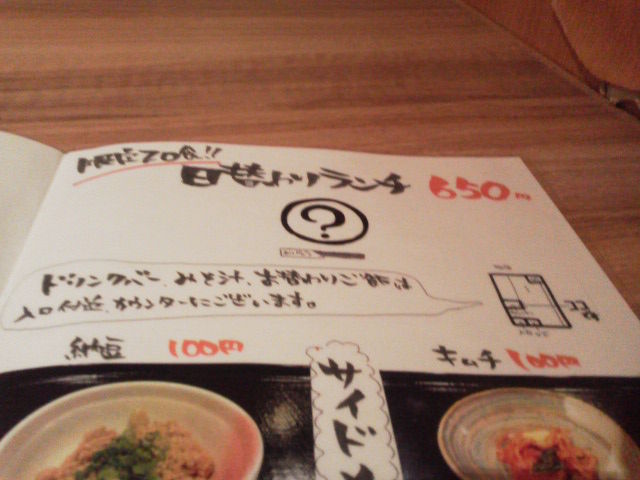 限定20食!!
日替わりランチ 650円
?
ドリンクバー、みそ汁、お替わりご飯は
入口付近、カウンターにございます。
納豆 100円
キムチ 100円
サイド